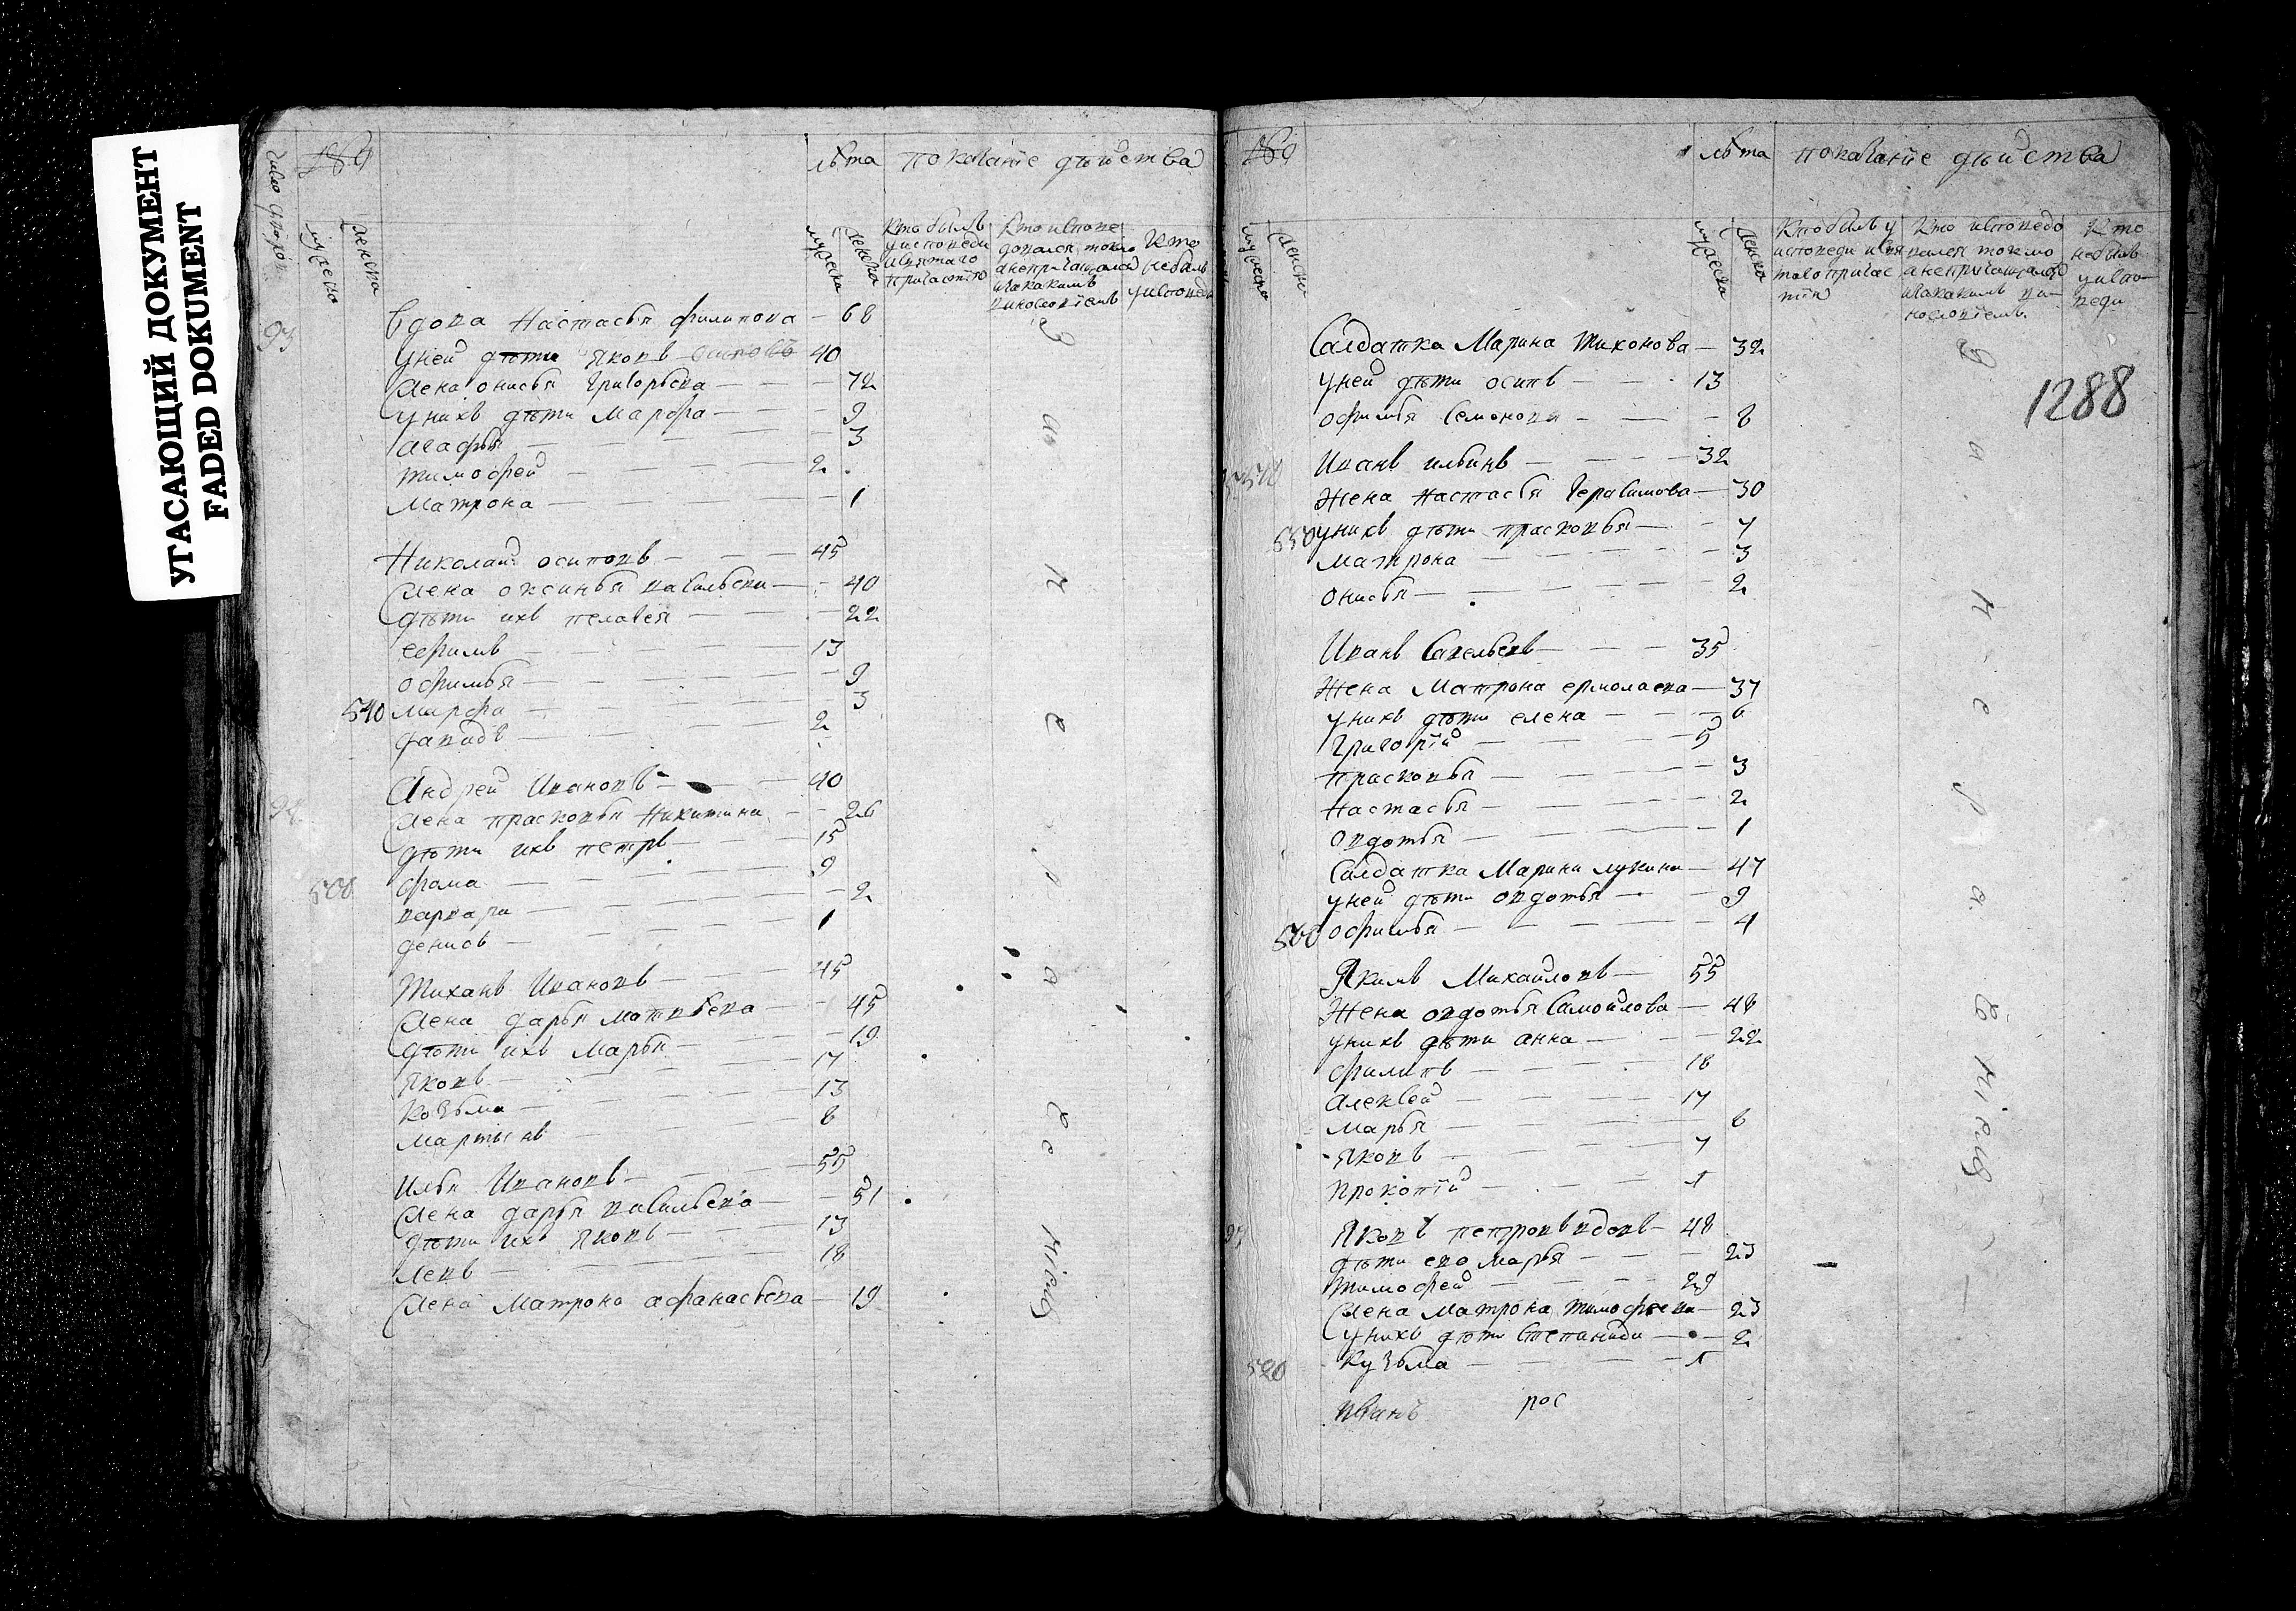 УГАСАЮЩИЙ ДОКУМЕНТ
FADED DOKUMENT
число дворов
мужеска
женска
лѣта
показание дѣйства
мужеска
женска
Кто былъ
у исповеди
и святаго
причастия
Кто испове
довался токмо
а не причащался
и за какимъ
винословіемъ
Кто
не былъ
у исповеди
93
вдова Настасья филипова — 68
у ней дѣти Яковъ осиповъ 40
жена онисья Григорьева — 42
у нихъ дѣти Марфа — 9
агафья — 3
тимофей — 2
Матрона — 1
Николай осиповъ — 45
жена оксинья васильева — 40
дѣти ихъ пелагея — 22
ефимъ — 13
офимья — 9
540 Марфа — 3
давидъ — 2
Андрей Ивановъ — 40
жена прасковья Никитина — 26
дѣти ихъ петръ — 15
фома — 9
варвара — 2
денисъ — 1
Тиханъ Ивановъ — 45
жена дарья Матвѣева — 45
дѣти ихъ Марья — 19
Яковъ — 17
Козьма — 13
Мартынъ — 8
Илья Ивановъ — 55
жена дарья васильева — 51
дѣти ихъ Яковъ — 13
левъ — 18
жена Матрона афанасьева — 19
лѣта
показание дѣйства
мужеска
женска
мужеска
женска
Кто былъ у
исповеди и свя
таго причас
тія
Кто исповедо
вался токмо
а не причащался
и за какимъ ви
нословіемъ
Кто
не былъ
у испо
веди
1288
Салдатка Марина Тихонова — 32
у ней дѣти осипъ — 13
офимья Семенова — 8
Иванъ ильинъ — 32
Жена Настасья Герасимова — 30
550 у нихъ дѣти прасковья — 7
Матрона — 3
онисья — 2
Иванъ Савельевъ — 35
Жена Матрона ермолаева — 37
у нихъ дѣти елена — 6
Григорій — 5
прасковья — 3
Настасья — 2
овдотья — 1
Салдатка Марина лукина — 47
у ней дѣти овдотья — 9
560 офимья — 4
Якимъ Михайловъ — 55
Жена овдотья Самойлова — 48
у нихъ дѣти анна — 22
филипъ — 18
Алексей — 17
марья — 6
Яковъ — 7
прокопій — 1
Яковъ петровъ вдовъ — 48
дѣти ево марья — 23
тимофей — 29
жена Матрона тимофеева — 23
у нихъ дѣти Степанида — 2
Кузьма — 1
Иванъ рос